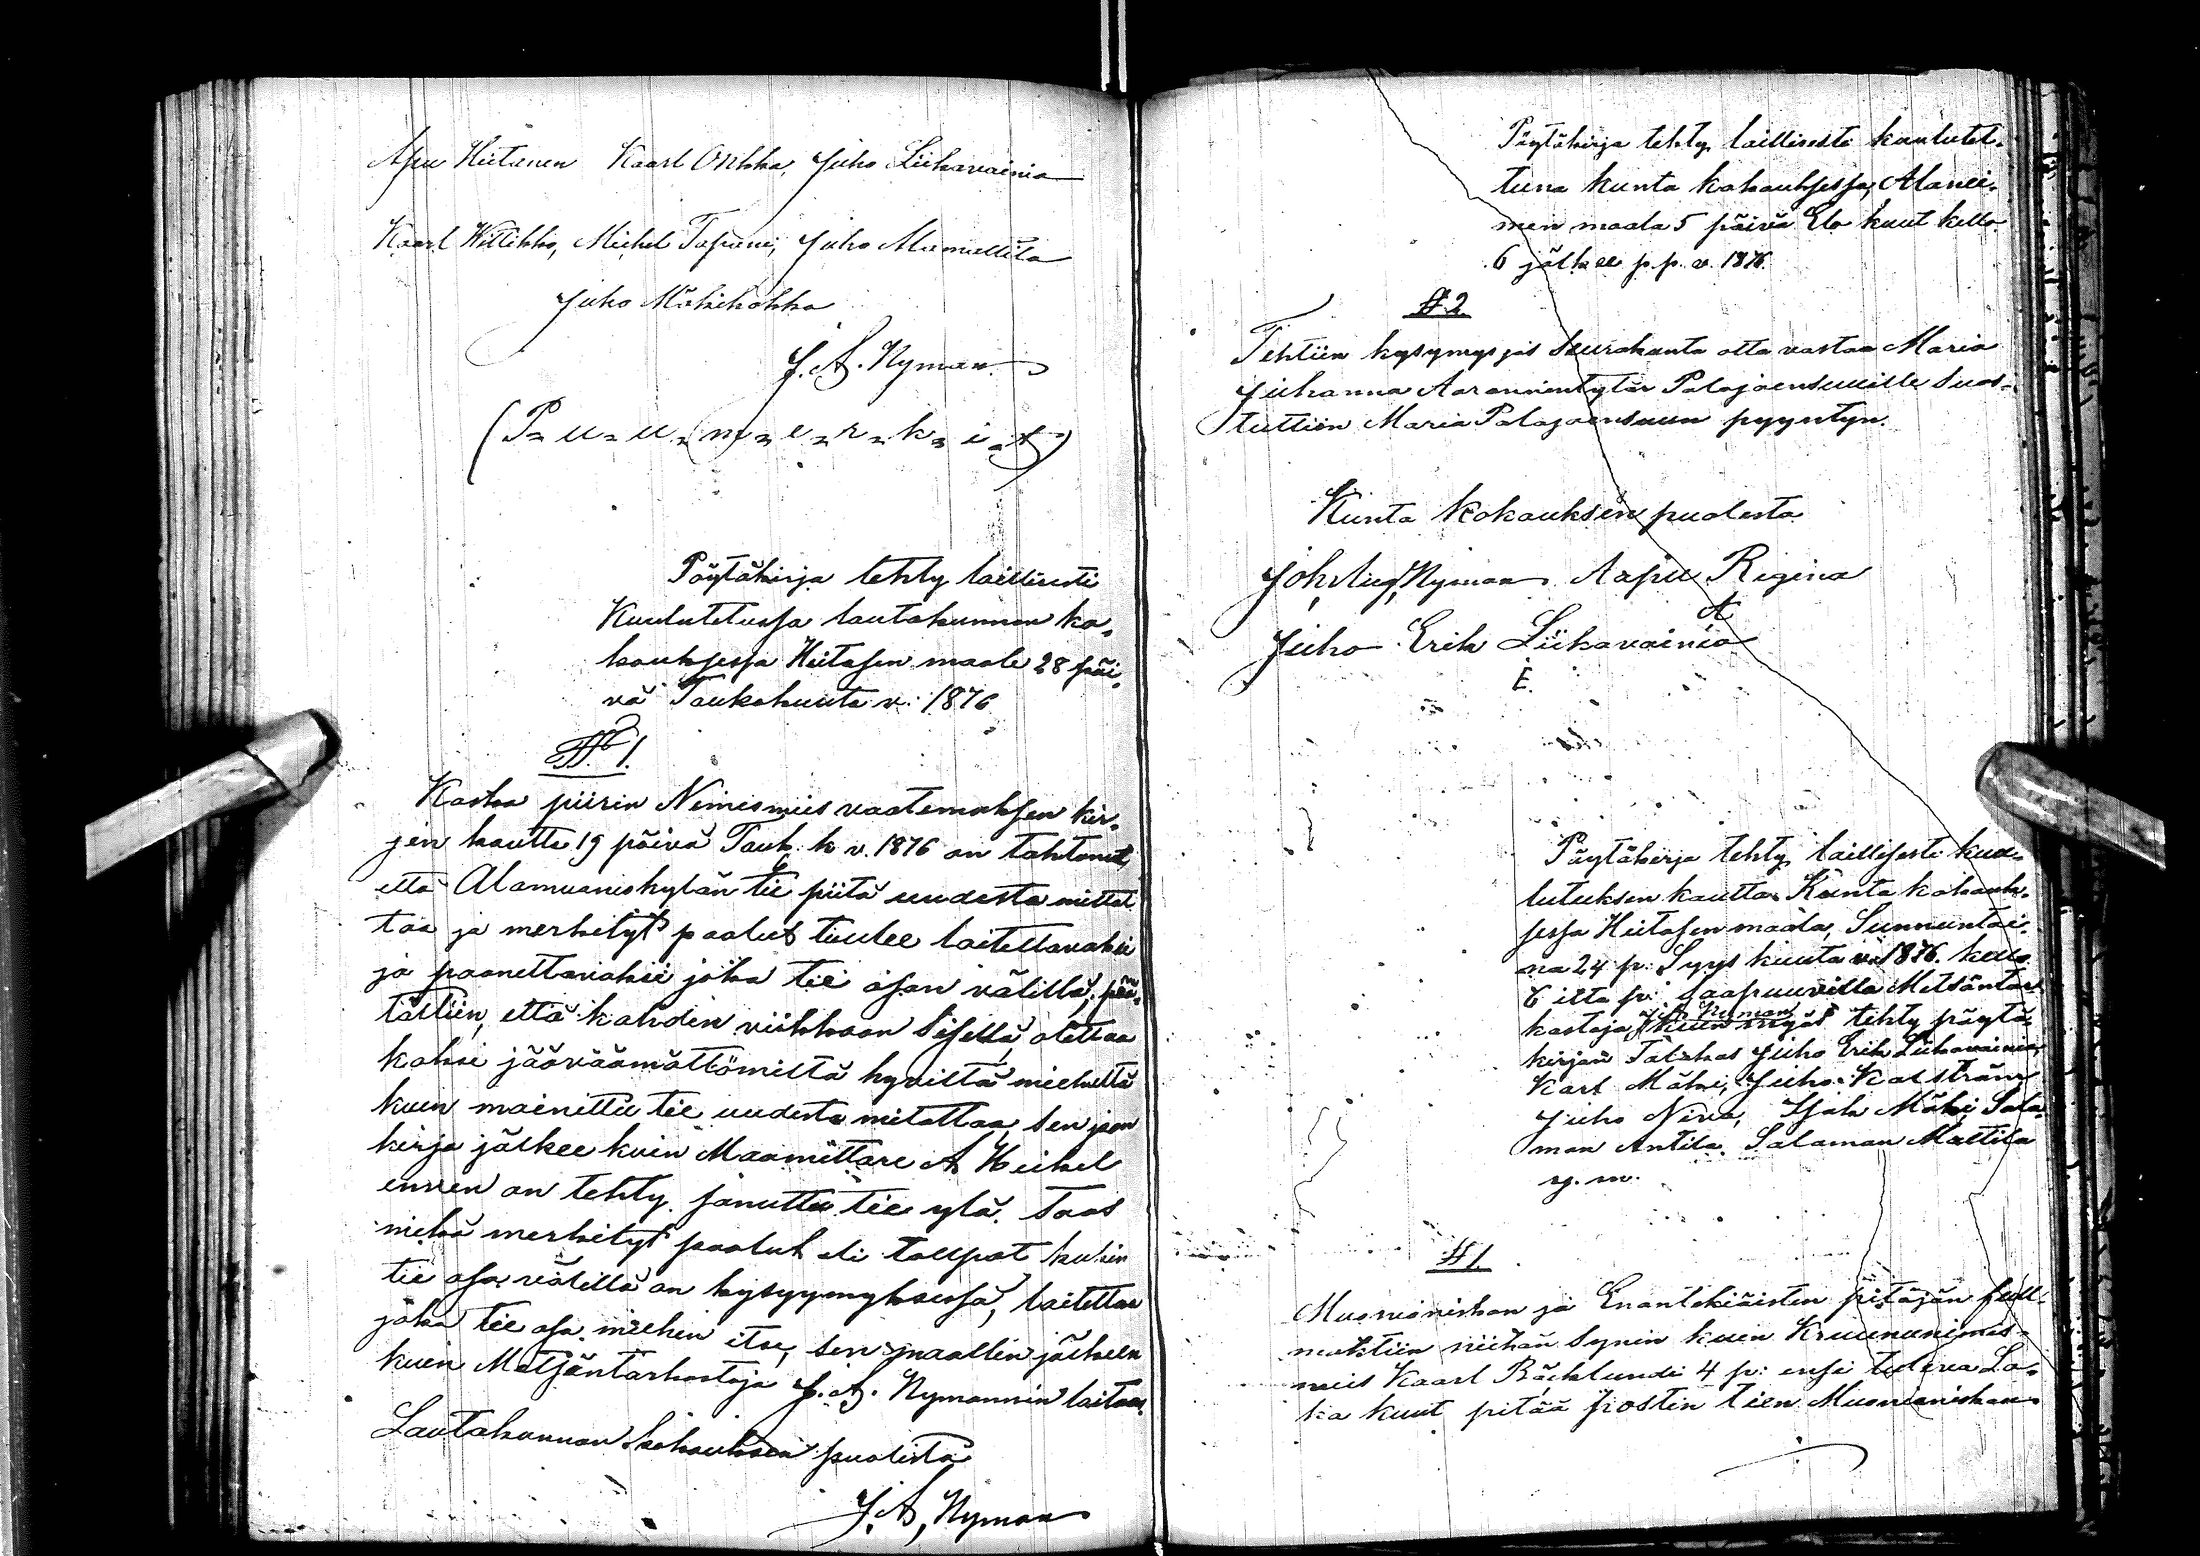 Apu Hietanen Kaarl Onkka, Juho Liikavainio
Kaarl Willikko, Michel Tapani, Juho Alamattila
Juho Mäkikokko
J. A. Nyman
(P=u=u=m=e=r=k=i=t)
Pöytäkirja tehty laillisesti
Kuulutetussa lautakunnan ko-
kouksessa Hietasen maala 28 päi-
vä Toukokuuta v. 1876
§ 1.
Koska piirin Nimismies vaatemuksen kir-
jen kautta 19 päivä Touk. k v. 1876 on tahtonut,
että Alamuonioskylän tie piitä uudesta mittat
taa ja merkityt paalut tuulee laitettavaksi
ja paanettavaksi joka tie osan välillä, pää-
tättiin, että kahden viikkoon sisellä otettaa
kaksi jäävämättömiltä hyviltä miehiltä
kuin mainittu tie uudesta mitattaa, sen jaon
kirja jälkee kuin Maamittare A Heikel
ennen on tehty samuttu tie ylä. Taas
mitkä merkityt paalut eli tolpat kuhin
tie osa välillä on kysyymyksessä, laitettaa
joka tie osa miehen itse, sen maallin jälkeen
kuin Metsäntarkastaja J. A. Nymannin laitaa.
Lautakunnan kokouksen puolesta
J. A. Nyman
Pöytäkirja tehty laillisesti kuulutet-
tuna kunta kokouksessa, Alanii-
men maala 5 päivä Elo kuut kello
6 jälkee p.p. v. 1876.
§ 2
Tehtiin kysymys jos Seurakunta otta vastaa Maria
Juhanna Aaronnintytär Palojoensuulle Suos-
tuttiin Maria Palojoensuun pyyntyn.
Kunta Kokouksen puolesta
Joh. Aug. Nyman Aapu Rigina
A
Juho Erik Liikavainio
E.
Pöytäkirja tehty laillisesti kuu-
lutuksen kautta Kunta kokouk-
sessa Hietasen maala, Sunnuntai-
na 24 p: Syys kuuta v. 1876. kello
6 ilta p: Saapuuvilla Metsäntar
kastaja J. A. Nyman kuin myös tehty pöytä-
kirjan Juho Erik Liikavainio,
Karl Mäki, Juho Kalström
Juho Niva, Isak Mäki Salo-
mon Antila. Salamon Mattila
y. m.
§ 1
Muonionniskan ja Enontekiäisten pitäjän
muktiin niihän Synin kuin Kruununimis-
mies Kaarl Bäcklundi 4 p: ensi tuleva Lo-
ka kuut pitää postin tien Muonionniskan